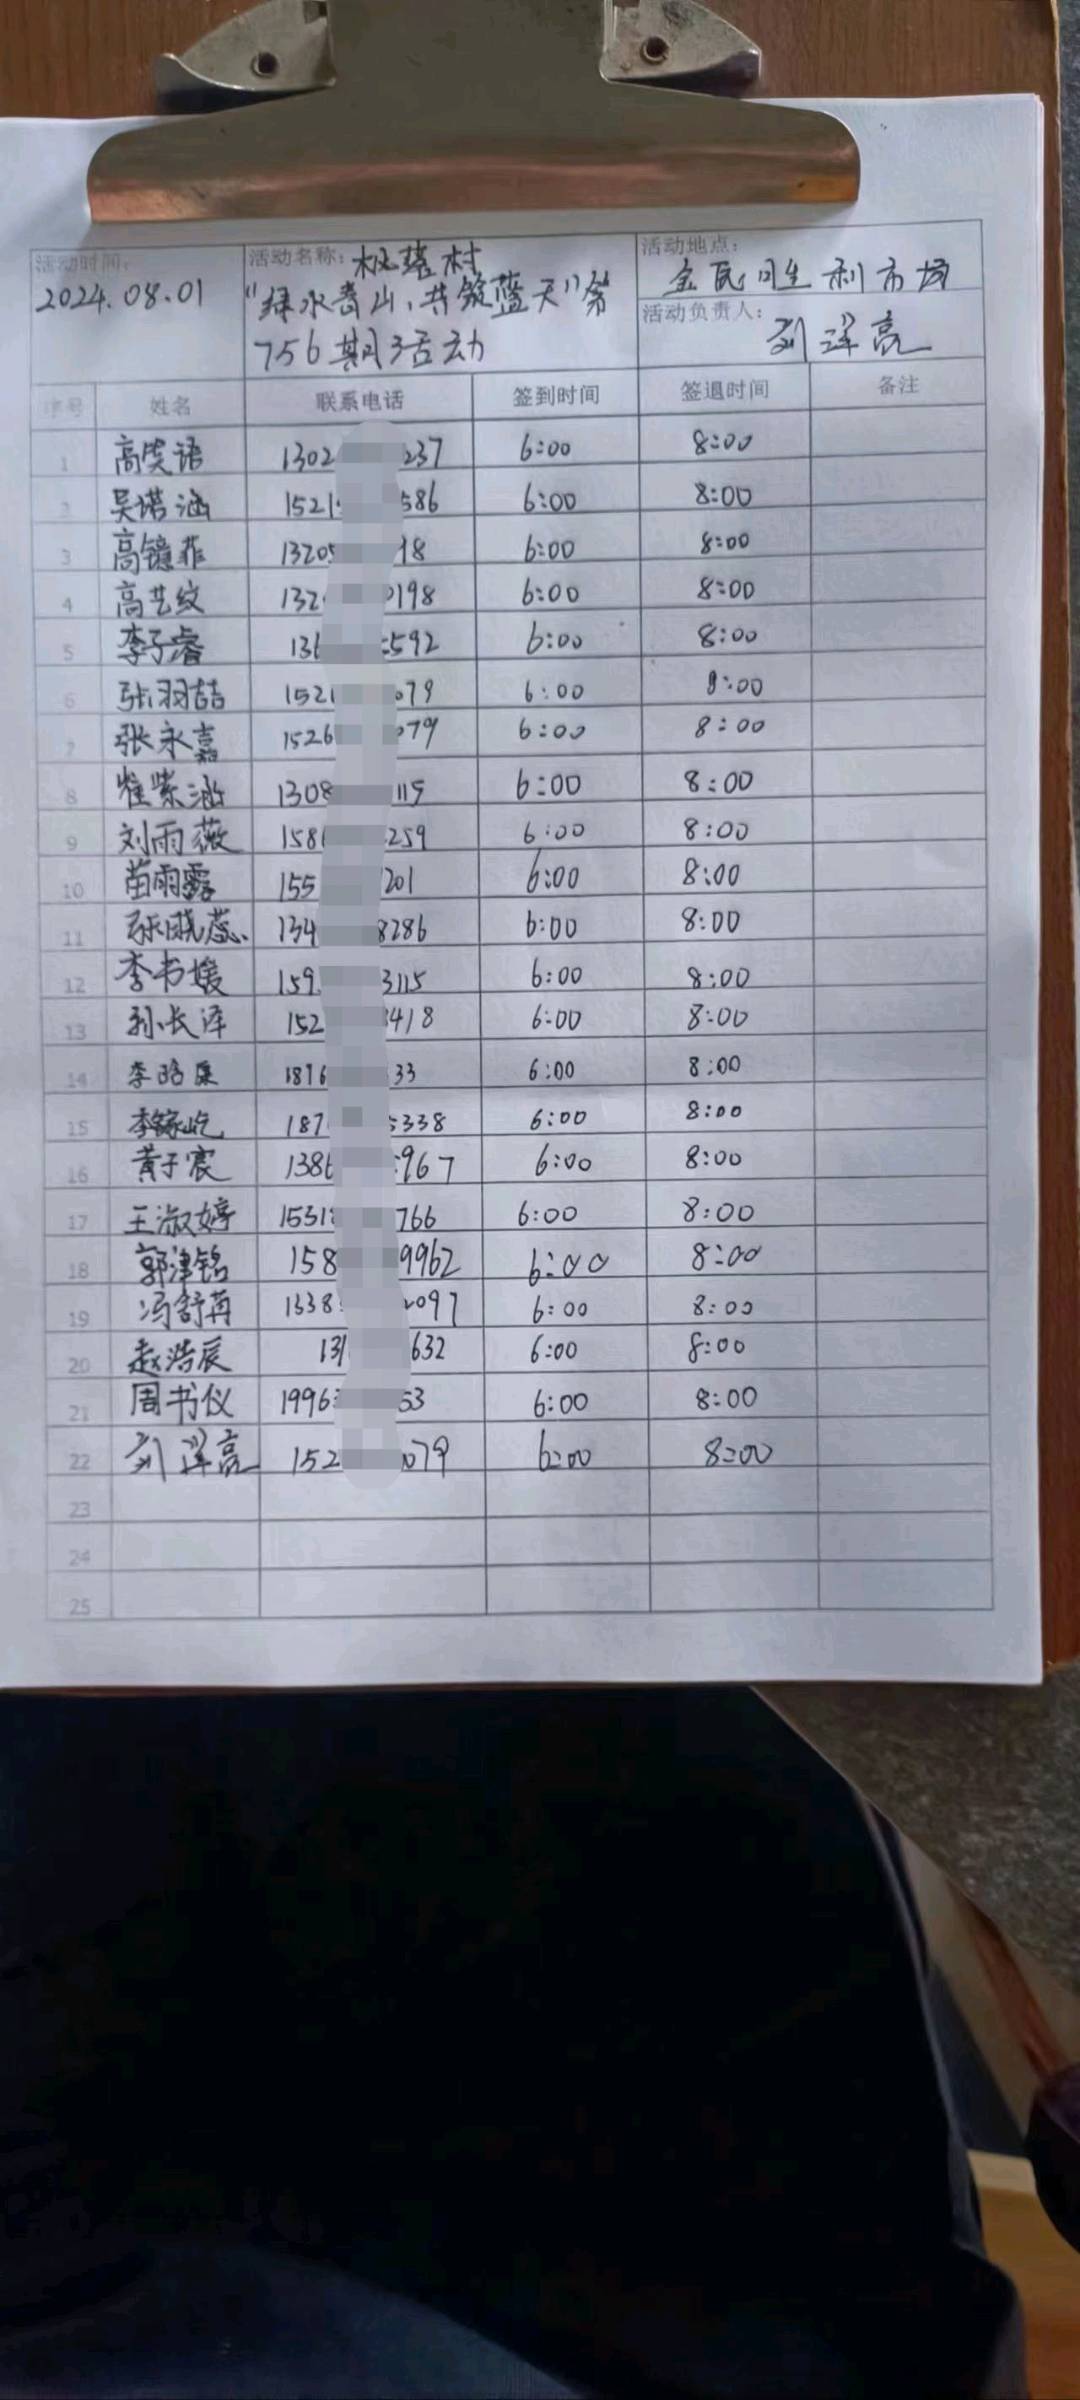 活动时间：
2024.08.01
活动名称：
"绿水青山，共筑蓝天"第
756期活动
活动地点：
利市场
活动负责人：
刘洋亮
序号 姓名 联系电话 签到时间 签退时间 备注
1 高笑语 1302 237 6:00 8:00
2 吴诺涵 1521 586 6:00 8:00
3 高镱菲 13205 18 6:00 8:00
4 高艺纹 132 0198 6:00 8:00
5 李子睿 136 5592 6:00 8:00
6 张羽喆 152 079 6:00 8:00
7 张永嘉 1526 079 6:00 8:00
8 崔紫涵 1308 115 6:00 8:00
9 刘雨薇 1586 259 6:00 8:00
10 苗雨露 155 201 6:00 8:00
11 张晓蕊 134 8286 6:00 8:00
12 李书媛 159 3115 6:00 8:00
13 孙长泽 152 3418 6:00 8:00
14 李 1876 33 6:00 8:00
15 李稼屹 187 5338 6:00 8:00
16 黄子宸 1386 967 6:00 8:00
17 王淑婷 1531 766 6:00 8:00
18 郭津铭 158 9962 6:00 8:00
19 冯舒苒 1338 2097 6:00 8:00
20 赵浩辰 131 632 6:00 8:00
21 周书仪 1996 53 6:00 8:00
22 刘洋亮 152 079 6:00 8:00
23
24
25